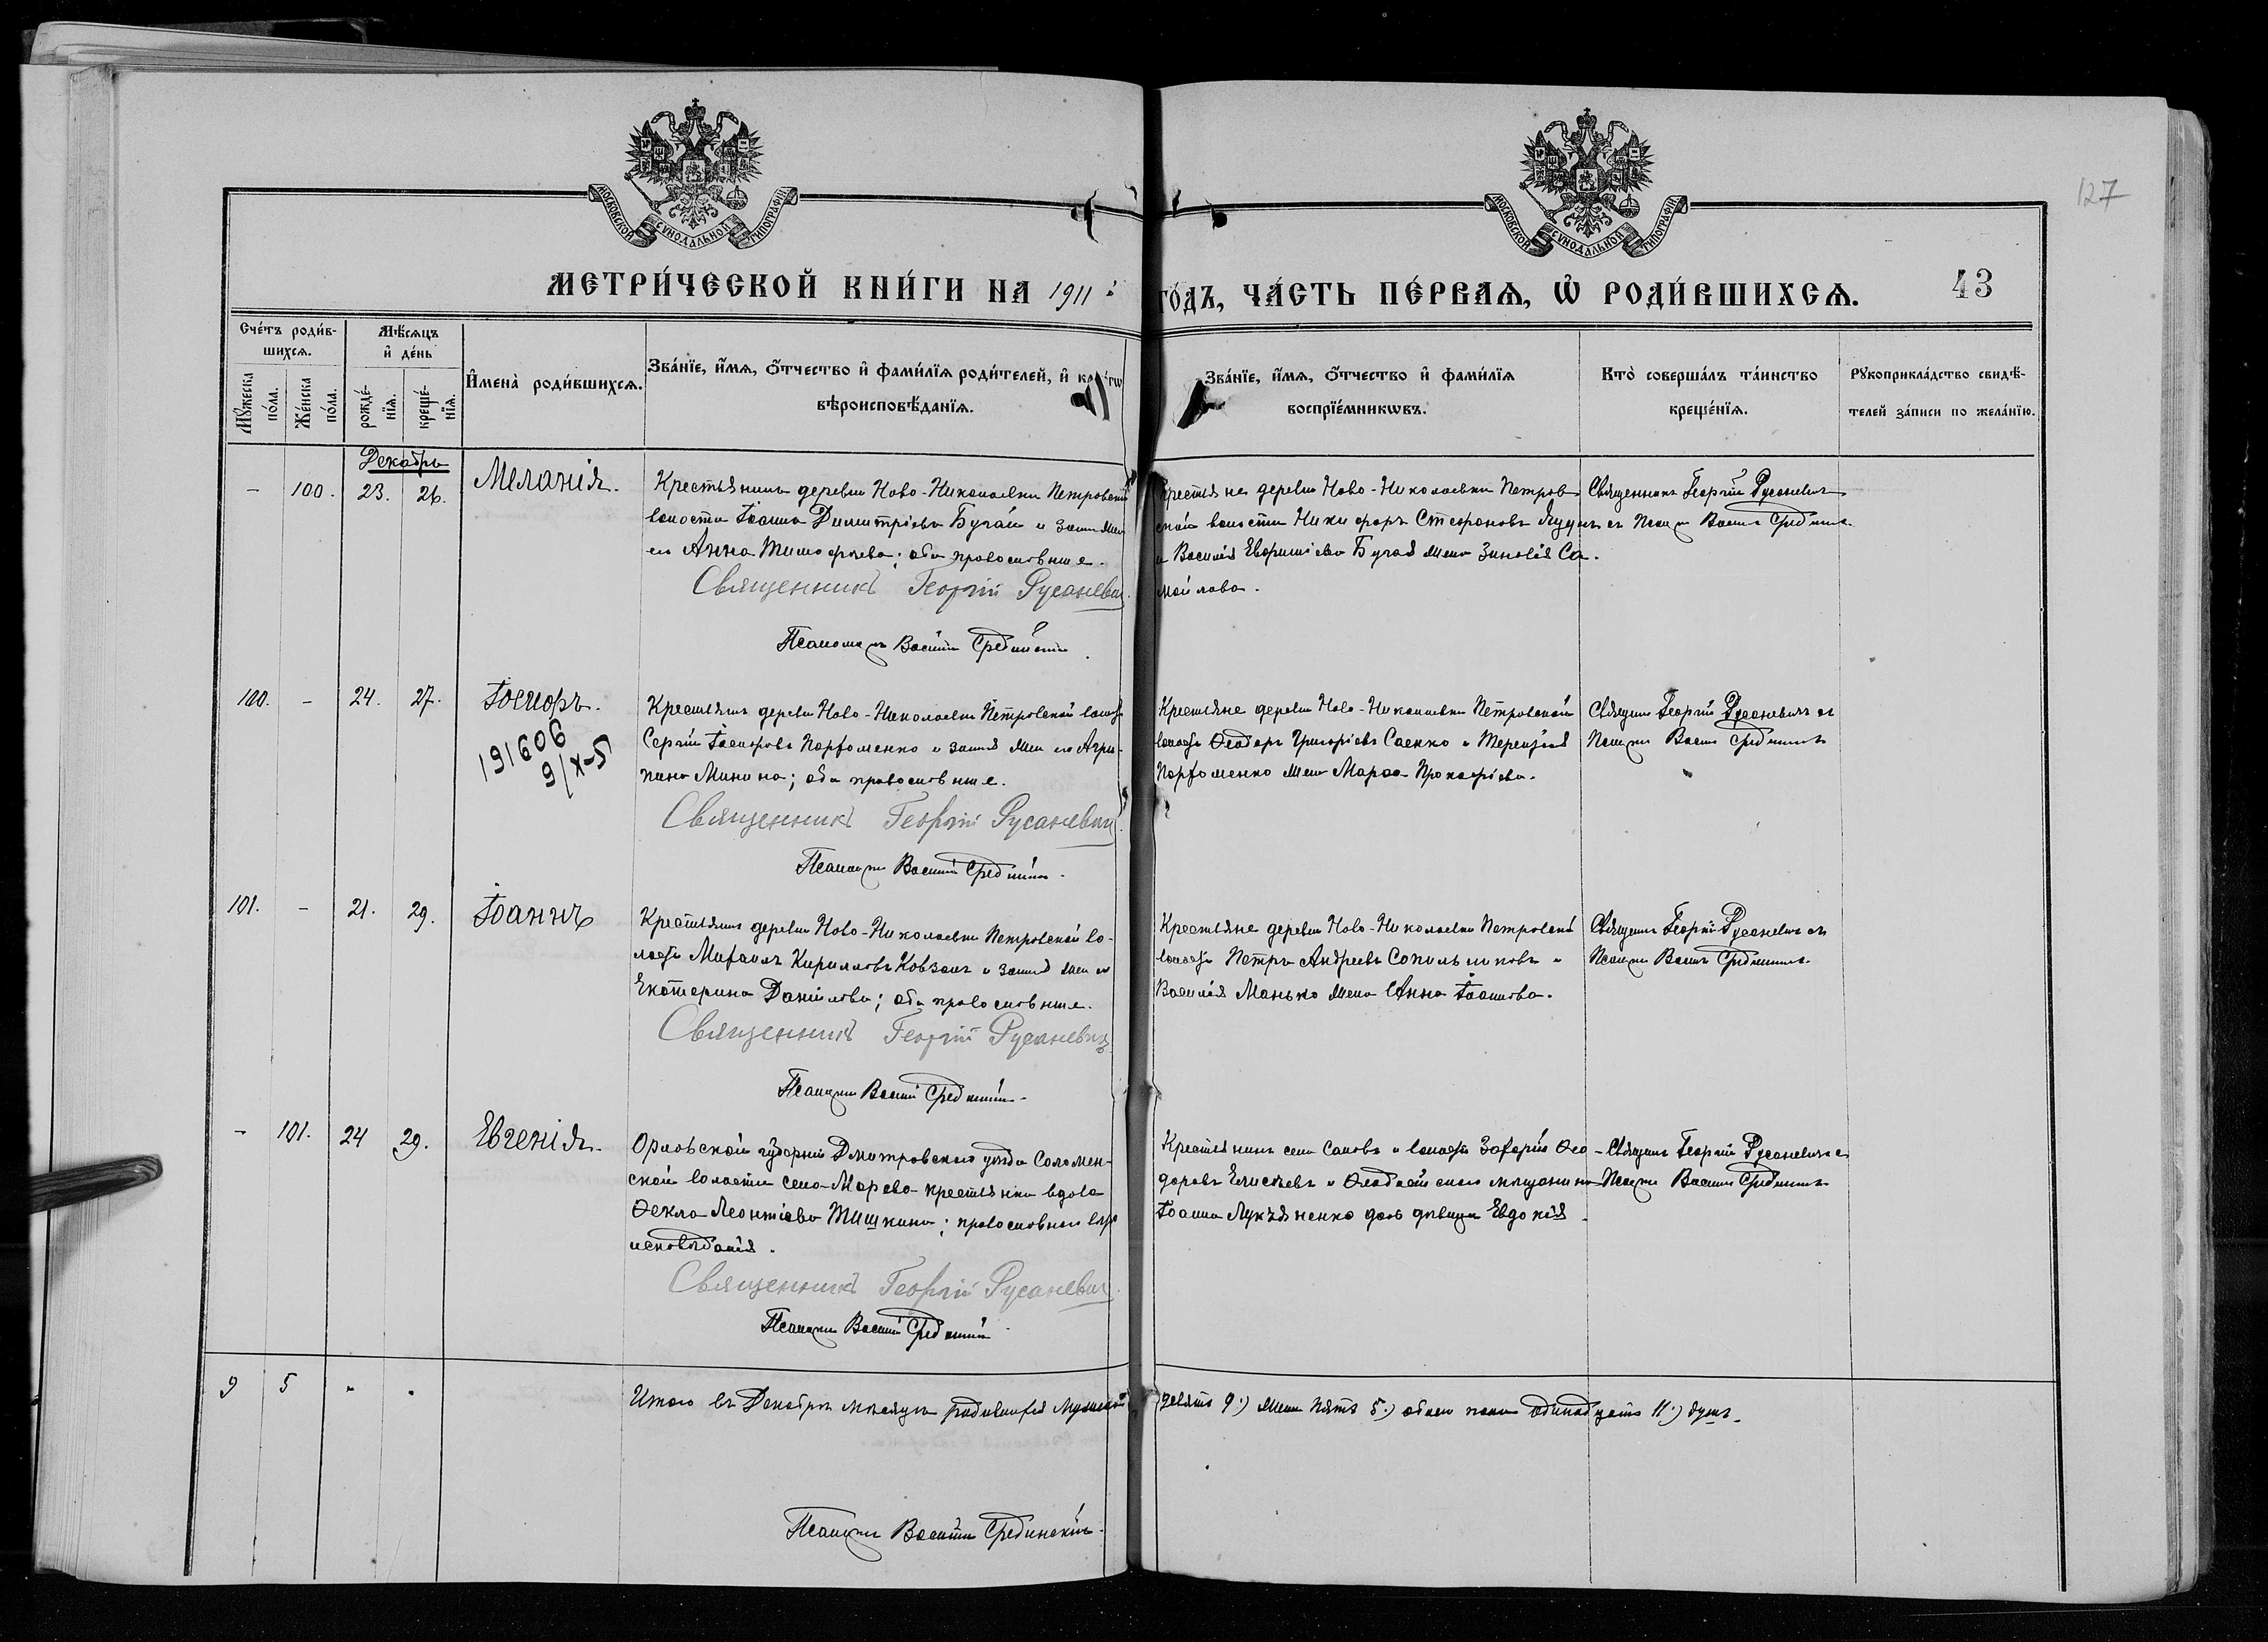 МОСКОВСКОЙ СѴНОДАЛЬНОЙ ТИПОГРАФІИ
МОСКОВСКОЙ СѴНОДАЛЬНОЙ ТИПОГРАФІИ
127
МЕТРИ́ЧЕСКОЙ КНИ́ГИ НА 1911 й ГО́ДЪ, ЧА́СТЬ ПЕ́РВАѦ, Ѡ҆ РОДИ́ВШИХСѦ.
43
Сче́тъ роди́в-
шихсѧ.
Мꙋ́жеска по́ла.
Же́нска по́ла.
Мѣ́сѧцъ
и҆ де́нь
рожде́-
нїѧ.
креще́-
нїѧ.
И҆мена̀ роди́вшихсѧ.
Зва́нїе, и҆́мѧ, ѻ҆́тчество и҆ фами́лїѧ роди́телей, и҆
вѣроисповѣ́данїѧ.
Зва́нїе, и҆́мѧ, ѻ҆́тчество и҆ фами́лїѧ
воспрїе́мникѡвъ.
Кто̀ соверша́лъ та́инство
креще́нїѧ.
Рꙋкоприкла́дство свидѣ́-
телей за́писи по жела́нїю.
Декабрь
- 100. 23. 26. Меланія.
Крестьянинъ деревни Ново-Николаевки Петровской
волости Іоаннъ Димитріевъ Бугай и закон. жена
его Анна Тимофеева; оба православные.
Священникъ Георгій Русаневич
Псаломщ. Василій Срединскій
Крестьяне деревни Ново-Николаевки Петров-
ской волости Никифоръ Стефановъ
и Василія Евфиміева Бугая жена Зиновія Са-
мойлова.
Священникъ Георгій Русаневич
съ Псаломщ. Василіемъ Срединск.
100. - 24. 27. Іосифъ.
191606
9/X-5
Крестьянинъ деревни Ново-Николаевки Петровской волости
Сергій Іосифовъ Парфоменко и закон. жена его Агри-
пина Минина; оба православные.
Священникъ Георгій Русаневич
Псаломщ. Василій Срединскій
Крестьяне деревни Ново-Николаевки Петровской
волости Ѳеодоръ Григоріевъ Саенко и Терентія
Парфоменко жена Марѳа Прокофіева.
Священ. Георгій Русаневичъ съ
Псаломщ. Васил. Срединскимъ
101. - 21. 29. Іоаннъ
Крестьянинъ деревни Ново-Николаевки Петровской во-
лости Михаилъ Кирилловъ Ковзанъ и закон. жена его
Екатерина Данилова; оба православные.
Священникъ Георгій Русаневич
Псаломщ. Василій Срединскій
Крестьяне деревни Ново-Николаевки Петровской
волости Петръ Андреевъ Сопильниковъ и
Василія Манько жена Анна Іоаннова.
Священ. Георгій Русаневичъ съ
Псаломщ. Васил. Срединскимъ
- 101. 24 29. Евгенія.
Орловской губерніи Дмитровскаго уѣзда Соломен-
ской волости села Марева крестьянка вдова
Ѳекла Леонтіева Тишкина; православнаго вѣро-
исповѣданія.
Священникъ Георгій Русаневич
Псаломщ. Василій Срединскій
Крестьянинъ села и волости Захарій Ѳео-
доровъ Елисѣевъ и Ѳеодосійскаго мѣщанина
Іоанна Лукъяненко дочь дѣвица Евдокія.
Священ. Георгій Русаневичъ съ
Псаломщ. Василіемъ Срединскимъ
9 5 " "
Итого въ Декабрѣ мѣсяцѣ родившихся мужеска девять 9.) жен. пять 5.) обоего пола одинадцать 11.) душъ.
Псаломщ. Василій Срединскій